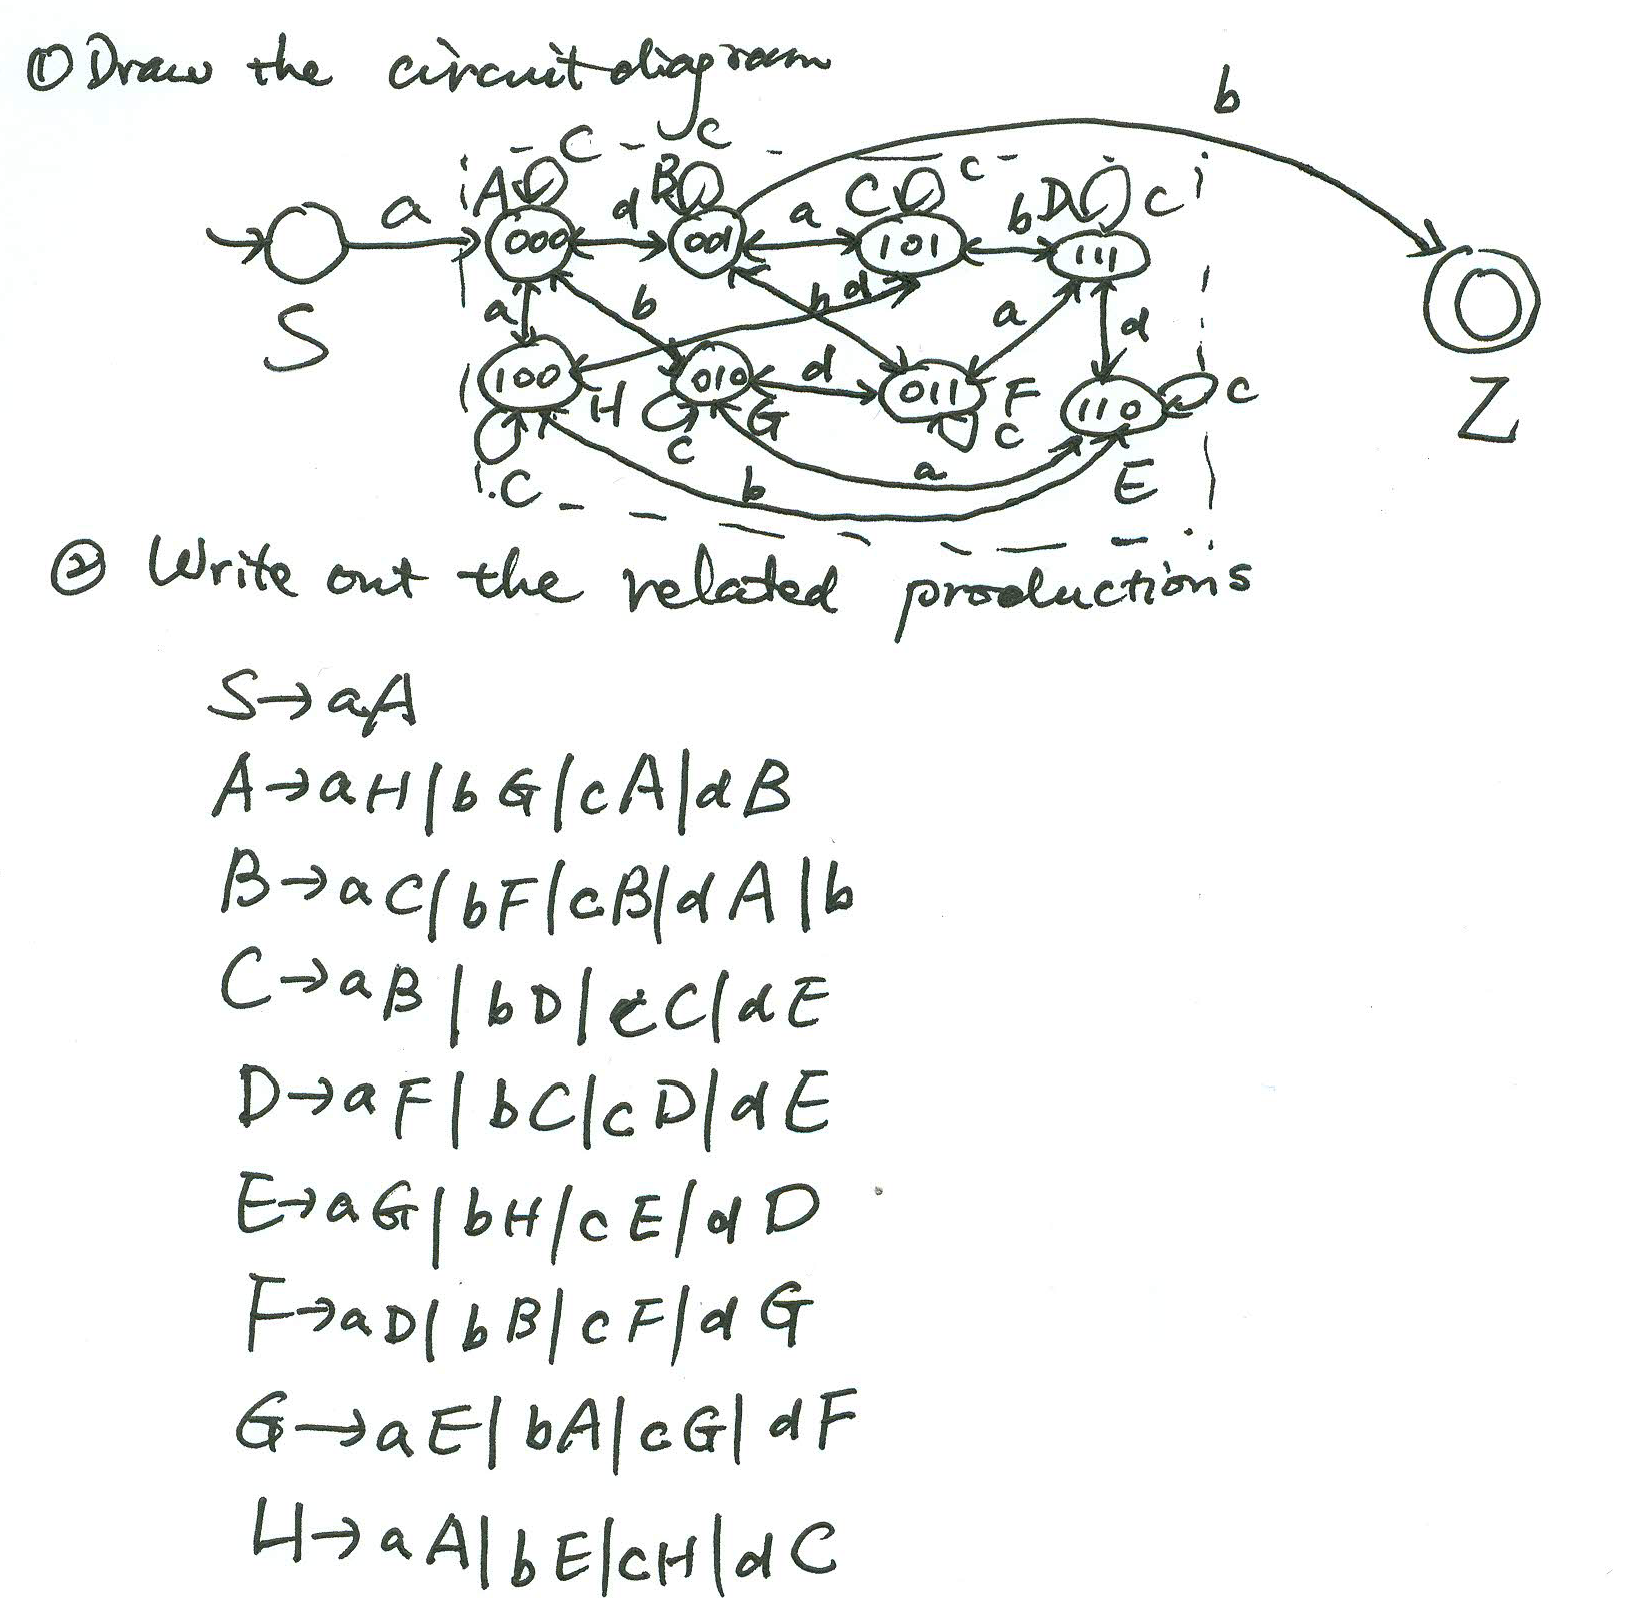 ① Draw the circuit diagram
b
C C c c
A d B a C b D C
a 000 001 101 111
S a b b d a d Z
100 010 d 011 F 110 c
H G
c c
C b a E
② Write out the related productions
S→aA
A→aH|bG|cA|dB
B→aC|bF|cB|dA|b
C→aB|bD|cC|dE
D→aF|bC|cD|dE
E→aG|bH|cE|dD
F→aD|bB|cF|dG
G→aE|bA|cG|dF
H→aA|bE|cH|dC